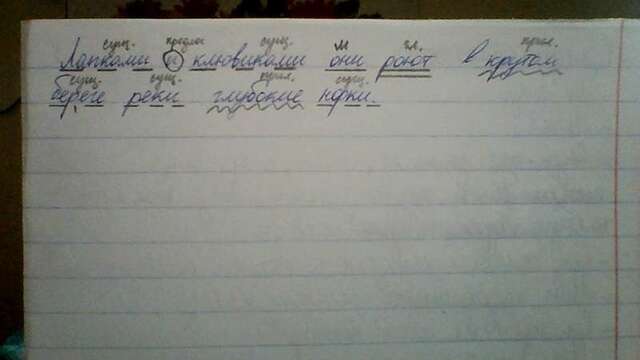 сущ. предлог сущ. м гл. прил.
Лапками и клювиками они роют в крутом
сущ. сущ. прил. сущ.
береге реки глубокие норки.